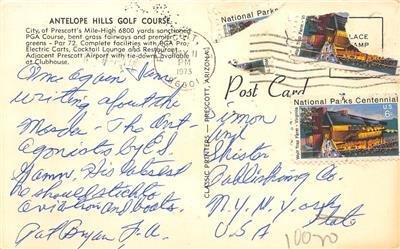 ANTELOPE HILLS GOLF COURSE
City, of Prescott's Mile-High 6800 yards sanctioned
PGA Course, bent grass fairways and premier
greens - Par 72. Complete facilities with PGA Pro,
Electric Carts, Cocktail Lounge and Restaurant.
Adjacent Prescott Airport with tie-downs available
at Clubhouse.
PM
1973
National Parks
National Parks Centennial
Wolf Trap Farm, Virginia
U.S.
6c
PLACE
STAMP
Post Card
CLASSIC PRINTERS — PRESCOTT, ARIZONA
Once again I am
writing about the
- The Ant-
agonists by E.
Gann. His latest
he should stick to
aviation and boats.
Pat Bryan
Simon
and
Shister
Publishing Co.
N.Y. N.Y.
State
U S A